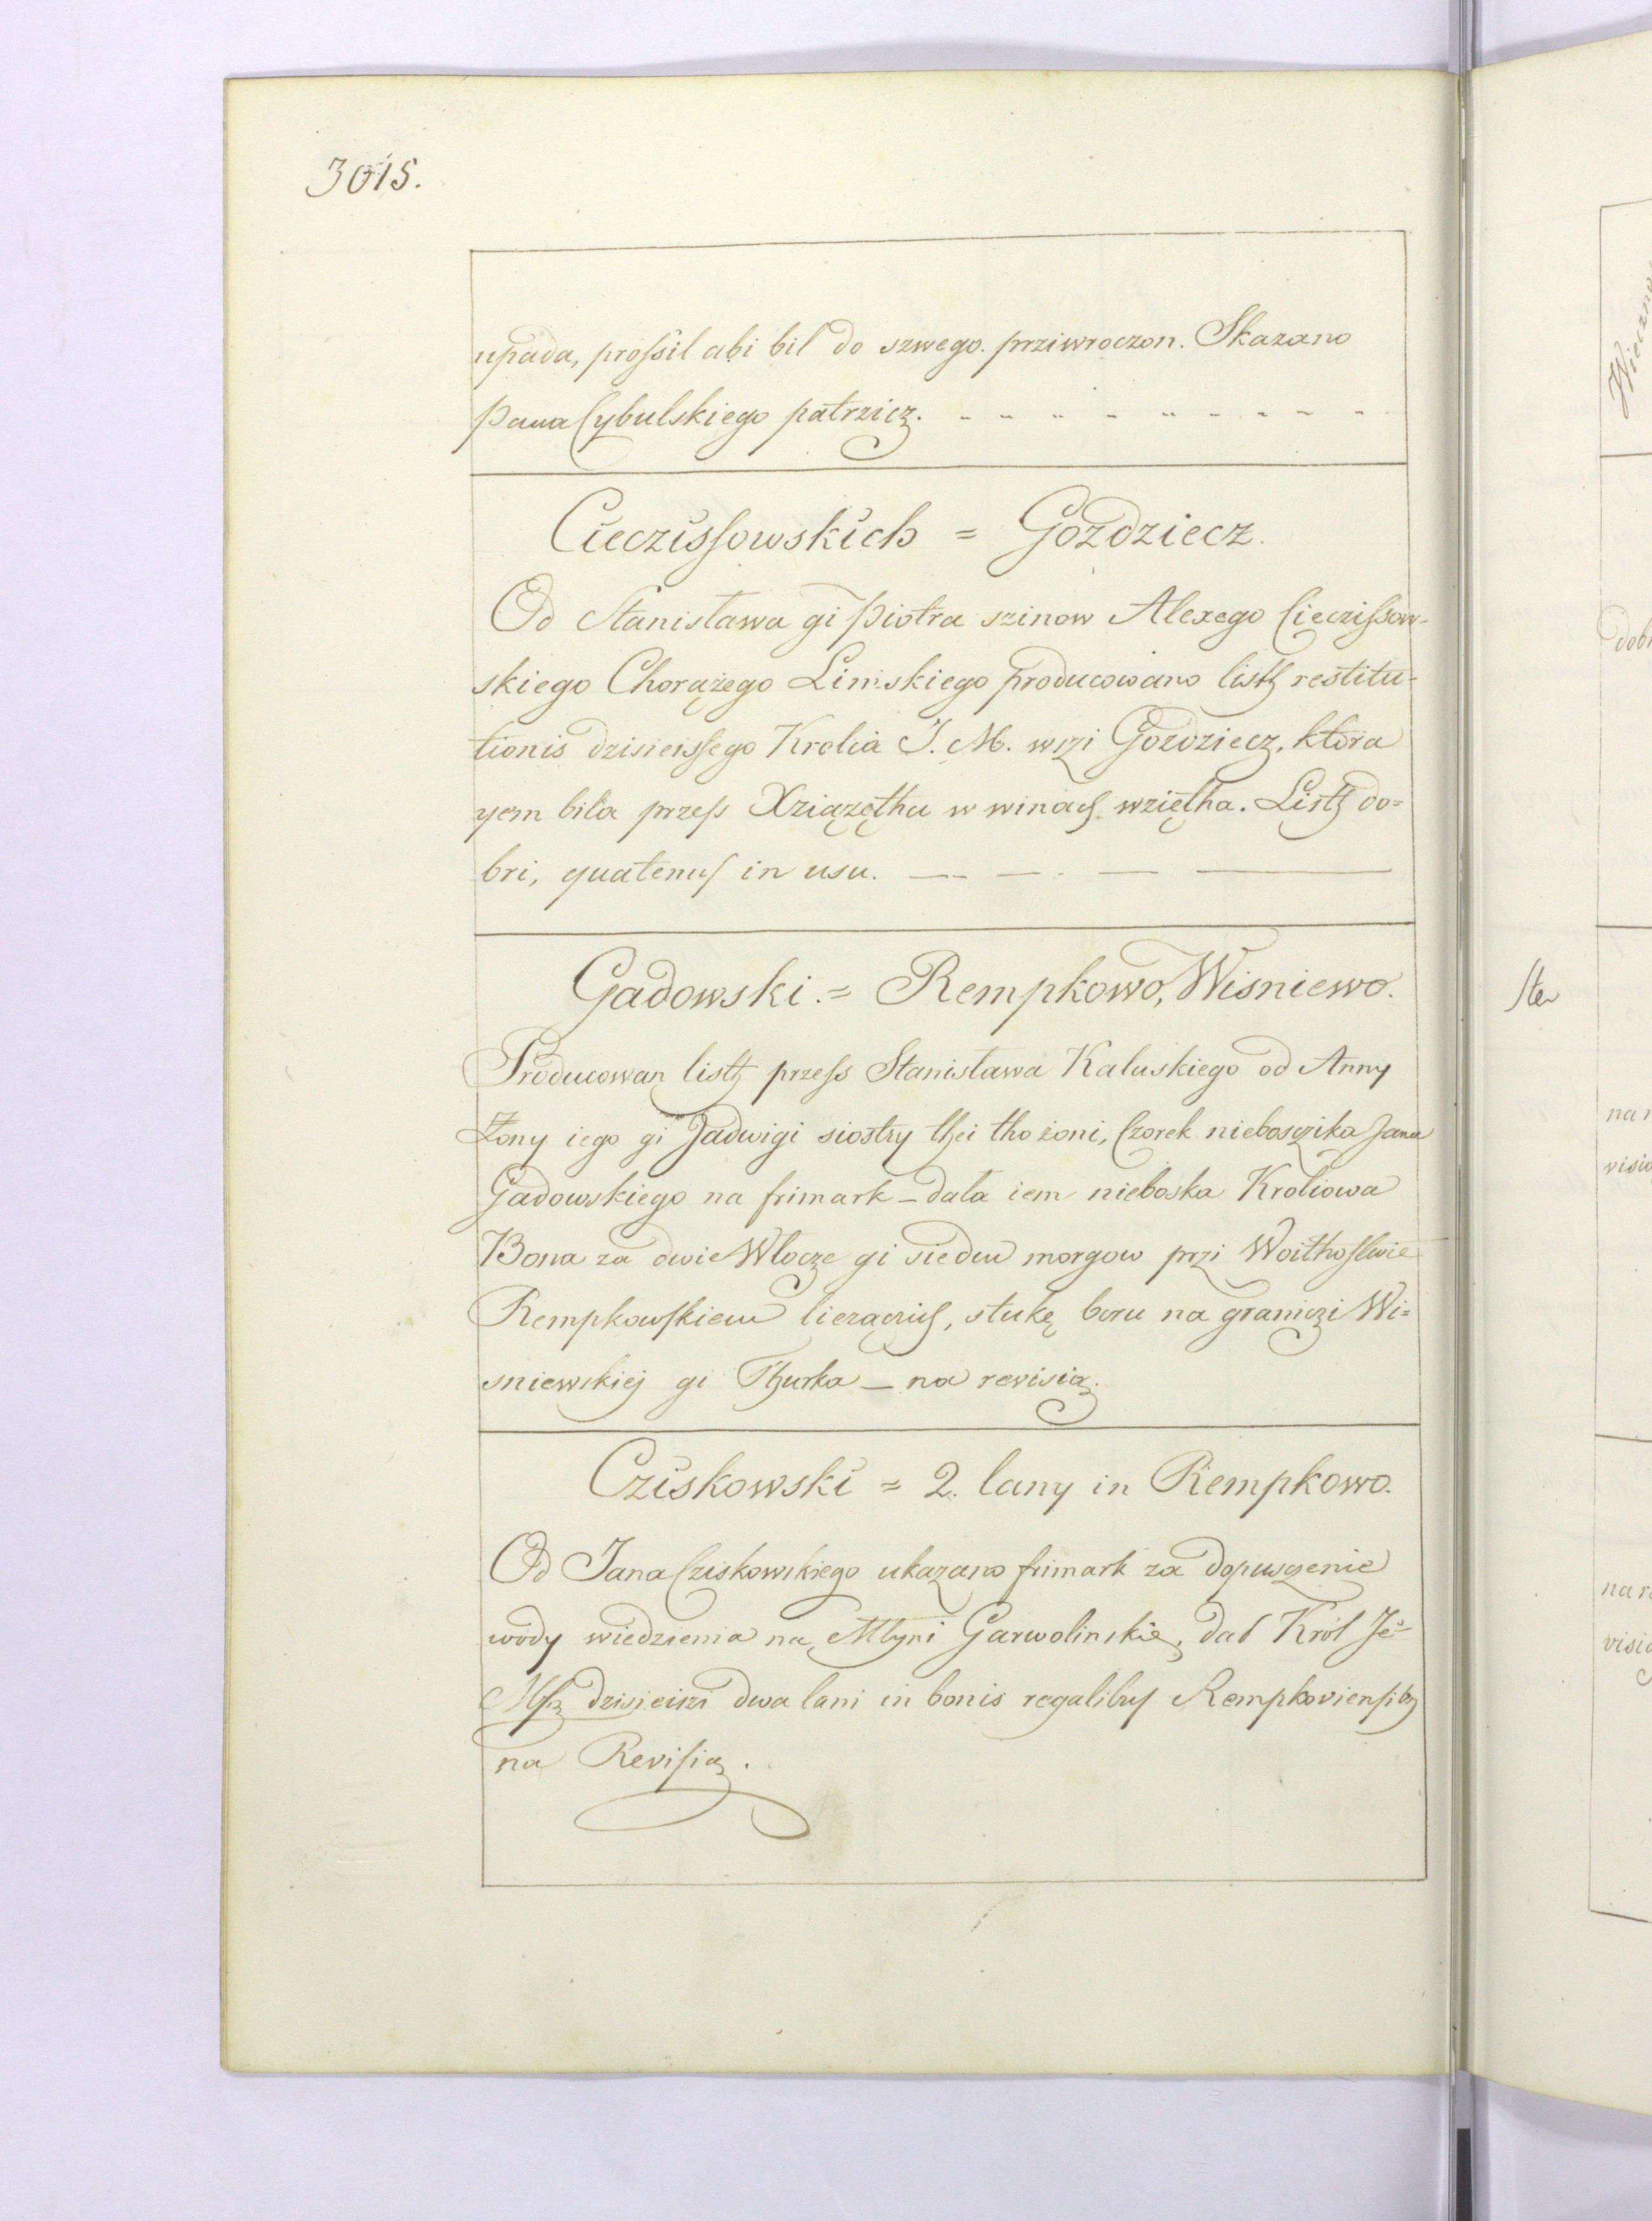 3015.
upada, prossil abi bil do szwego. prziwroczon. Skazano
Pana Cybulskiego patrzicz.
Cieczissowskich = Gozdziecz.
Od Stanisława gi Piotra szinow Alexego Cieczissow-
skiego Chorążego Liwskiego producowano listh restitu-
tionis dzisieissego Krolia J. M. wszi Gozdziecz, ktora
yem biła przess Xziązęthu w winach wziętha. Listh do=
bri, quatenus in usu.
Gadowski. = Rempkowo, Wisniewo.
Producowan listh przess Stanisława Kaluskiego od Anny
Żony iego gi Jadwigi siostry thei tho żoni, Czorek nieboszika Jana
Gadowskiego na frimark – dała iem nieboska Kroliowa
Bona za dwie Włocze gi siedm morgow przi Woithostwie
Rempkowskiem lieżączich, stukę boru na graniczi Wi=
sniewskiej gi Thurka – na revisią.
Cziskowski = 2. lany in Rempkowo.
Od Jana Cziskowskiego ukazano frimark za dopuszenie
wody wiedzienia na Młyni Garwolinskie, dał Król Je=
dzisieiszi dwa lani in bonis regalibus Rempkoviensibus
na Revisią.
Wieczno
dobr
Ste
na r
visio
na re
visio